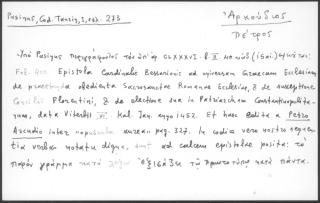 Pasinus, Cod. Taurin, I, σελ. 273
Ἀρκούδιος
Πέτρος
Ὑπὸ Pasinus περιγράφοντος τὸν ὑπ' ἀρ. CLXXXVI. b. II. 40 κώδ. (ις΄ αἰ.)
Fol. Epistola Cardinalis Bessarionis ad universam Graecam Ecclesiam
de praestanda obedientia Sacrosanctae Romanae Ecclesiae, & de susceptione
Concilii Florentini, & de electione sua in Patriarcham Constantinopolita-
num, data Viterbii VI. Kal. Jun. anno 1452. Et haec edita a Petro
Arcudio inter opuscula aurea pag. 327. In codice vero nostro sequen-
tia verba notatu digna, sunt ad calcem epistolae posita: τὸ
παρὸν γράμμα κατὰ τῷ πρωτοτύπῳ κατὰ πάντα.